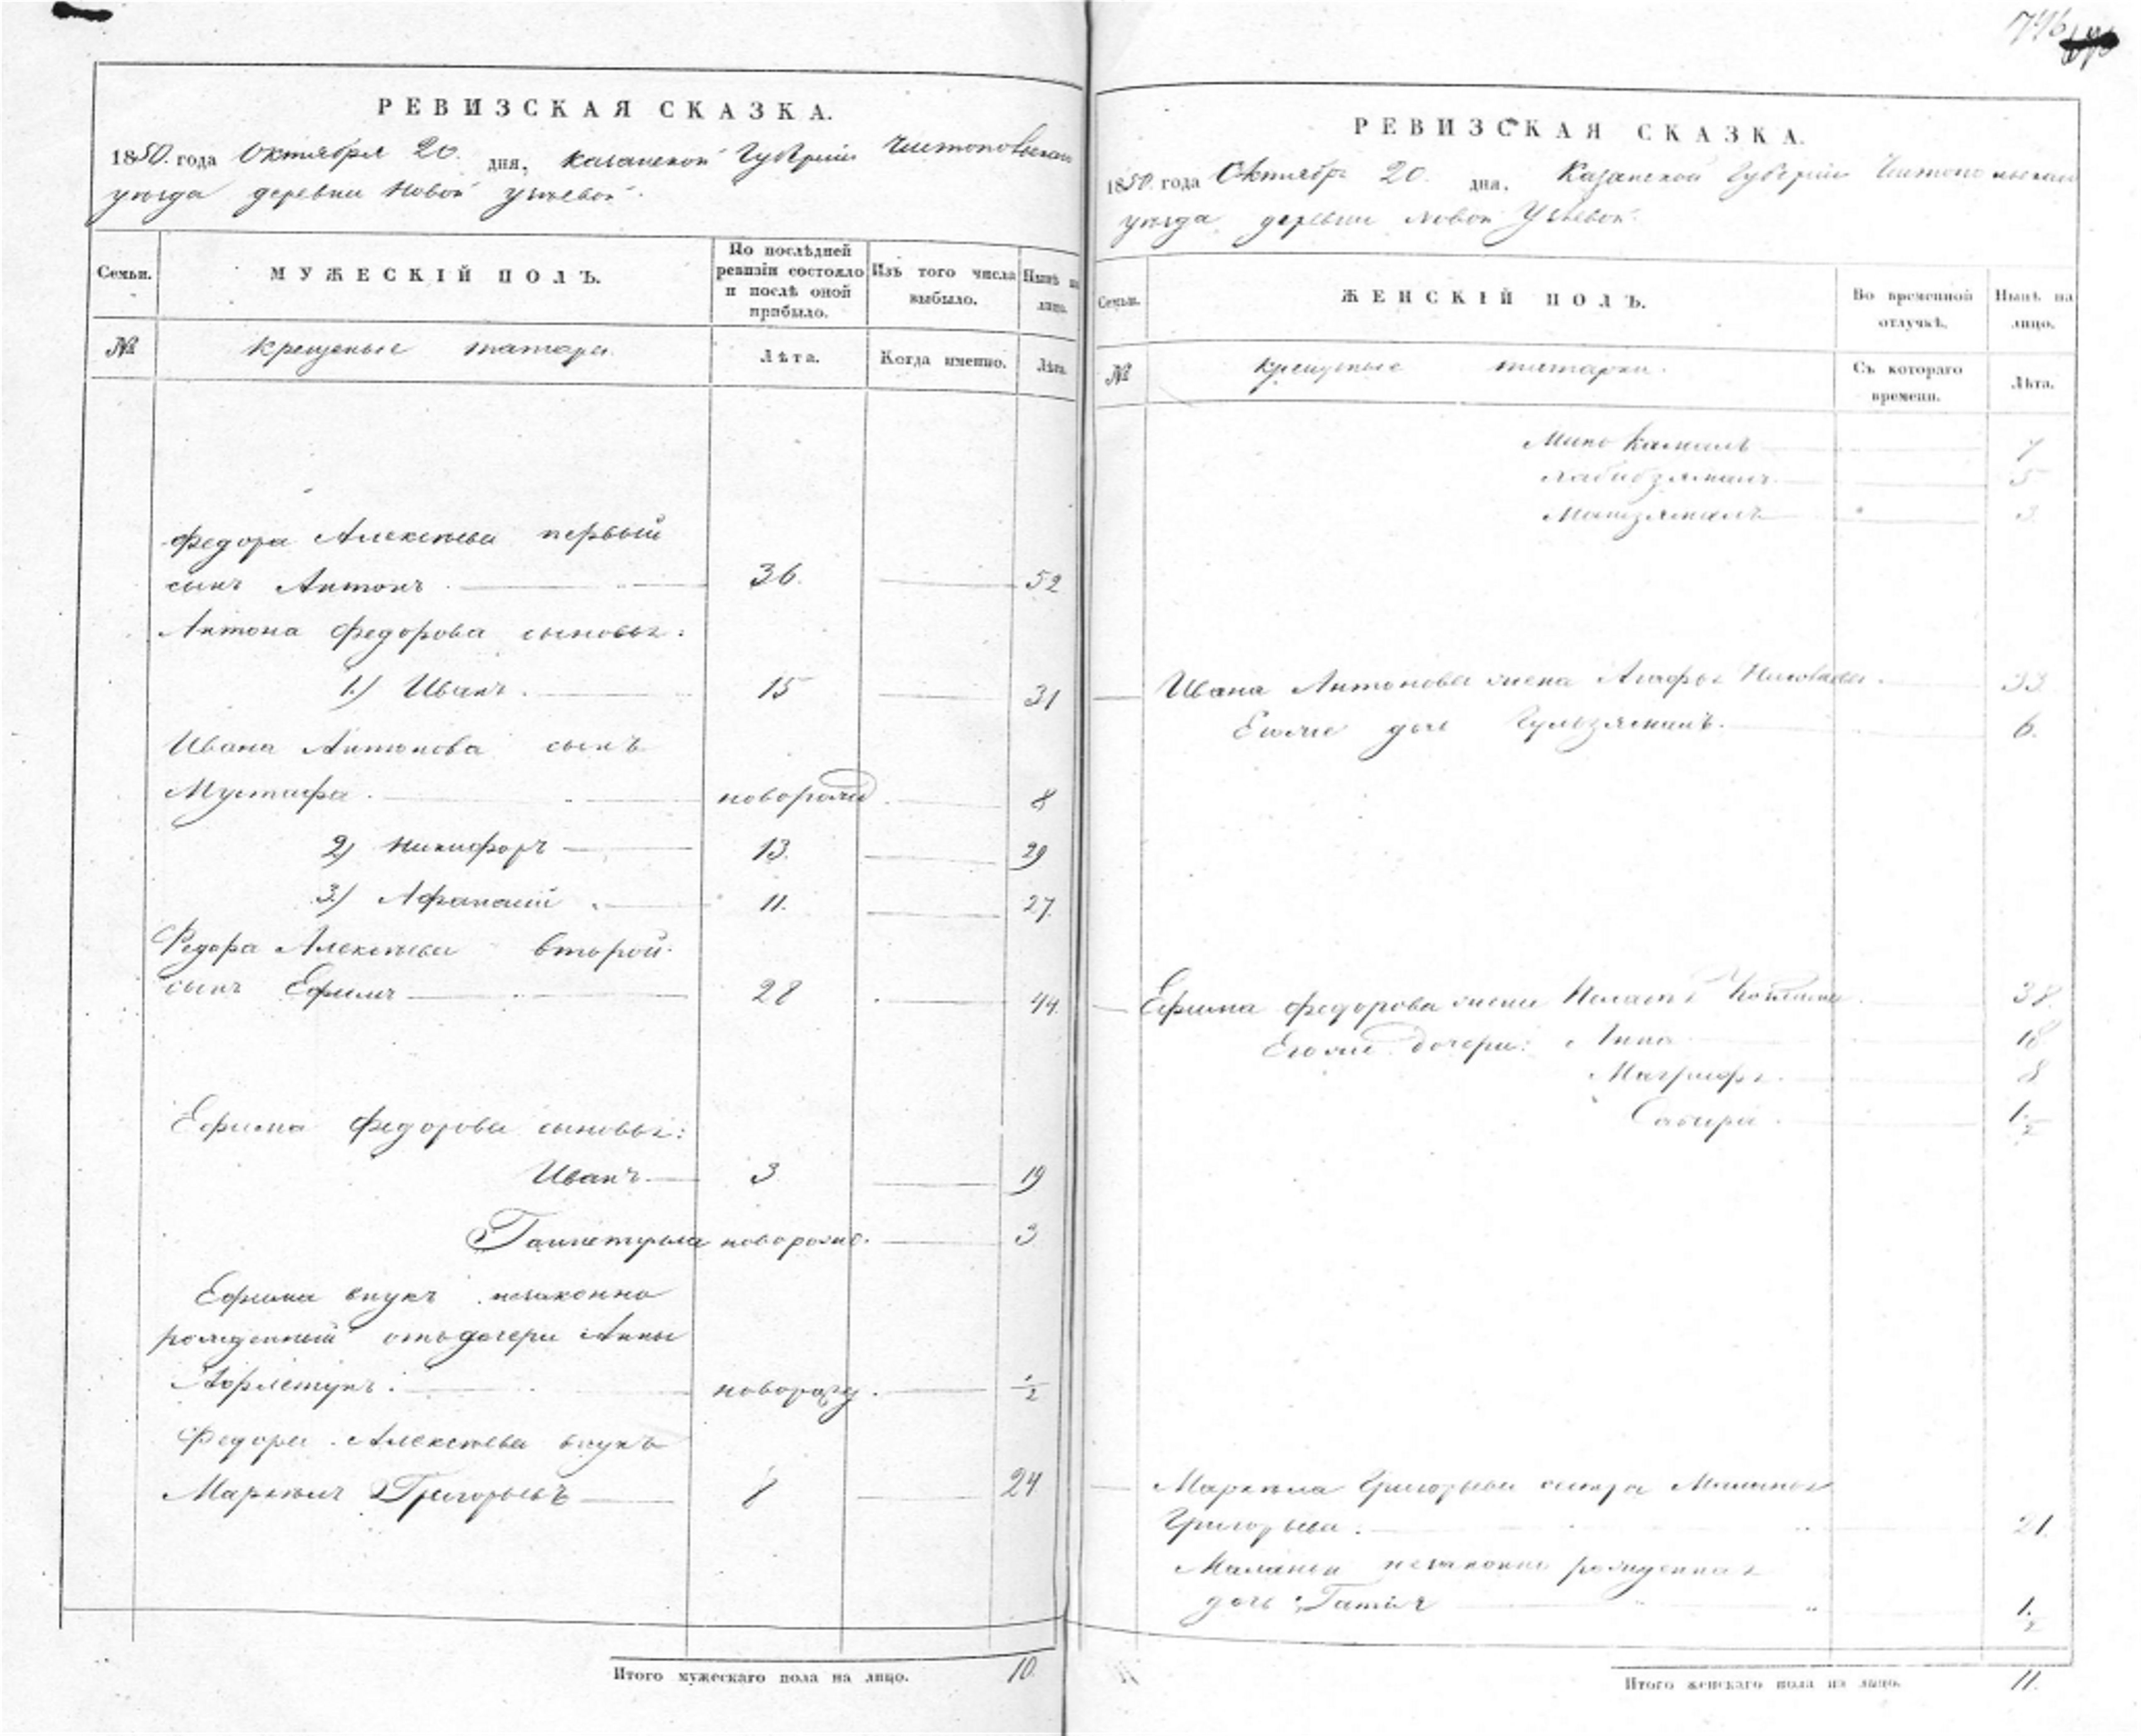 746
РЕВИЗСКАЯ СКАЗКА.
1850. года Октября 20. дня, Казанской Губерніи Чистопольскаго
уѣзда деревни Новой Утяевой.
Семьи.
МУЖЕСКІЙ ПОЛЪ.
По послѣдней ревизіи состояло и послѣ оной прибыло.
Изъ того числа выбыло.
Нынѣ на лицо.
№
крещеные татары.
Лѣта.
Когда именно.
Лѣта.
Федора Алексѣева первый
сынъ Антонъ 36. 52
Антона Федорова сыновья:
1.) Иванъ. 15 31
Ивана Антонова сынъ
Мустафа. новорожд. 8
2) Никифоръ 13. 29
3.) Афанасій 11. 27.
Федора Алексѣева второй
сынъ Ефимъ 28 44.
Ефима Федорова сыновья:
Иванъ 3 19
новорожд. 3
Ефима внукъ незаконно
рожденный отъ дочери Анны
новорожд. 1/2
Федора Алексѣева внукъ
Маркелъ Григорьевъ 8 24
Итого мужескаго пола на лицо. 10.
РЕВИЗСКАЯ СКАЗКА.
1850. года Октября 20. дня, Казанской Губерніи Чистопольскаго
уѣзда деревни Новой Утяевой.
Семьи.
ЖЕНСКІЙ ПОЛЪ.
Во временной отлучкѣ.
Нынѣ на лицо.
№
крещеные татарки.
Съ котораго времени.
Лѣта.
7
Хабибзямалъ 5
3
Ивана Антонова жена Агафья 33
Егоже дочь Гульзямалъ. 6.
Ефима Федорова жена 38.
Егоже дочери: Анна 18
8
Сабира 1 1/2
Маркела Григорьева сестра Маланья
Григорьева. 21.
Маланьи незаконно рожденная
дочь 1 1/2
Итого женскаго пола на лицо. 11.